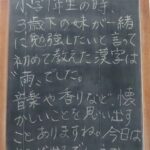 小学1年生の時、
3歳下の妹が一緒
に勉強したいと言って
初めて教えた漢字は
"雨"でした。
音楽や香りなど、懐
かしいことを思い出す
ことありますね。今日は